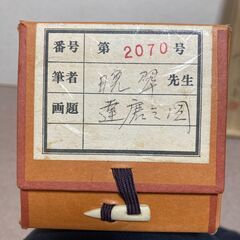 番号 第2070号
筆者 暁翠先生
画題 達磨之図